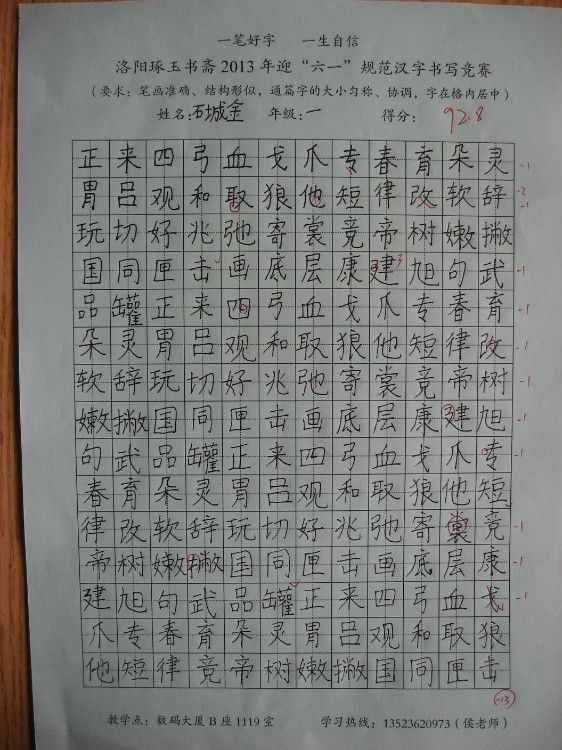 一笔好字 一生自信
洛阳琢玉书斋2013年迎“六一”规范汉字书写竞赛
（要求：笔画准确、结构形似，通篇字的大小匀称、协调，字在格内居中）
姓名：石城金 年级：一 得分：92.8
正来四弓血戈爪专春育朵灵 -1
胃吕观和取狼他短律改软辞 -2 -1
玩切好兆弛寄裳竟帝树嫩撇
国同匣击画底层康建旭句武 -1
品罐正来四弓血戈爪专春育 -1
朵灵胃吕观和取狼他短律改 -1
软辞玩切好兆弛寄裳竟帝树 -1
嫩撇国同匣击画底层康建旭 -1
句武品罐正来四弓血戈爪专 -1
春育朵灵胃吕观和取狼他短
律改软辞玩切好兆弛寄裳竟 -1
帝树嫩撇国同匣击画底层康 -1
建旭句武品罐正来四弓血戈 -1
爪专春育朵灵胃吕观和取狼
他短律竟帝树嫩撇国同匣击
-13
教学点：数码大厦B座1119室 学习热线：13523620973（侯老师）